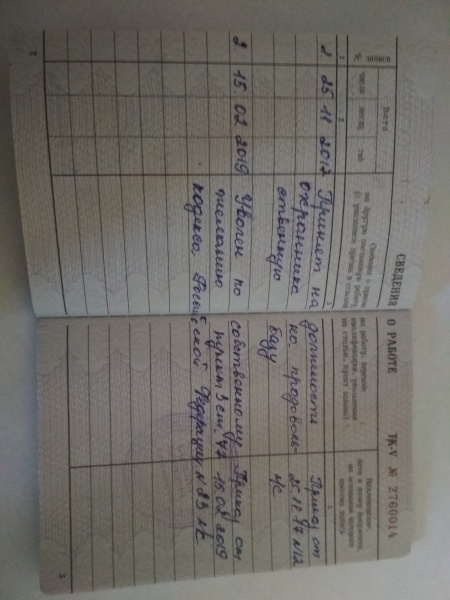 СВЕДЕНИЯ О РАБОТЕ ТК-V № 2760014
№ записи
Дата
число месяц год
Сведения о приеме на работу, переводе
на другую постоянную работу, квалификации, увольнении
(с указанием причин и ссылкой на статью, пункт закона)
Наименование,
дата и номер документа,
на основании которого
внесена запись
1 2 3
2 25 11 2017 Принят на должность Приказ от
охранника на продоволь- 25.11.17 №12
ственную базу н/с
2 15 02 2019 Уволен по собственному Приказ от
желанию пункт 3 ст. 77 15.02.2019
кодекса Российской Федерации № 23 н/с
2
3